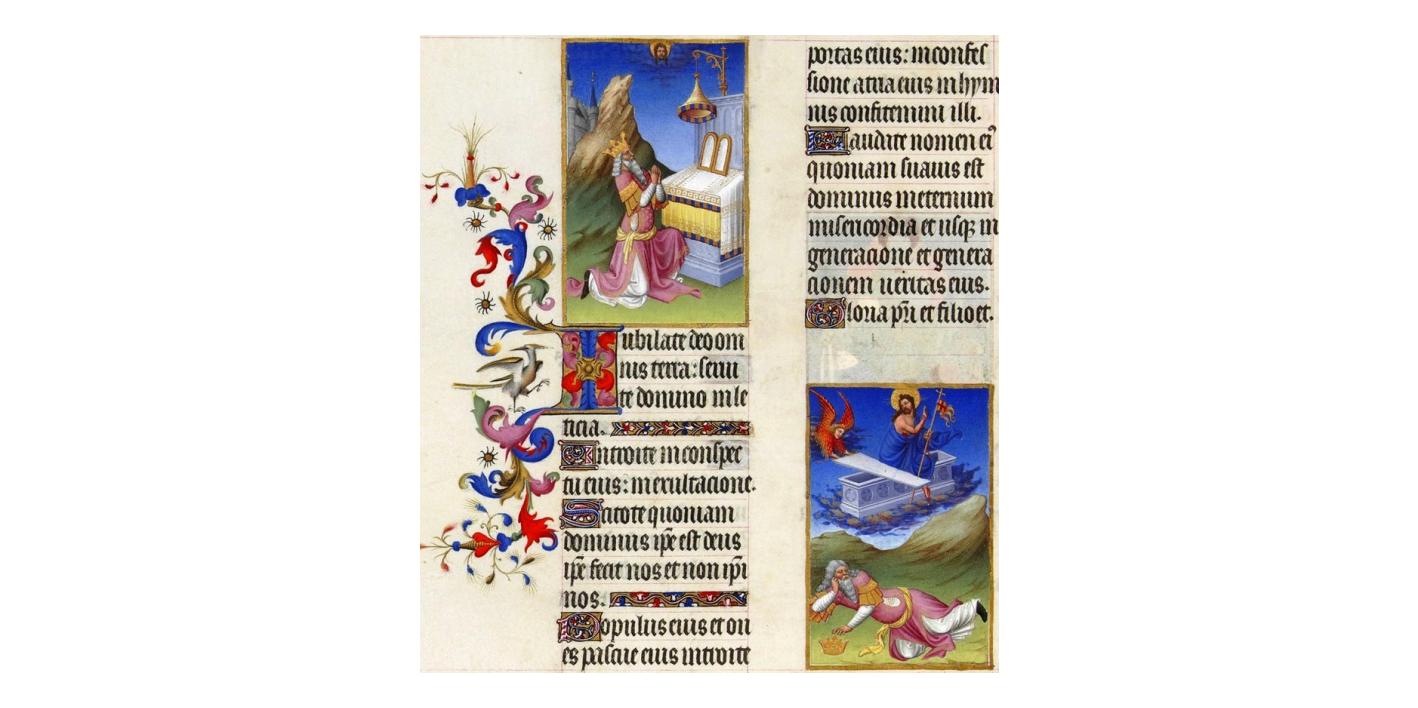 Iubilate deo om
nis terra: serui
te domino in le
ticia.
Introite in conspec
tu eius: in exultacione.
Scitote quoniam
dominus ip̅e est deus
ip̅e fecit nos et non ip̅i
nos.
Populus eius et ou
es pascue eius introite
portas eius: in confes
sione atria eius in hym
nis confitemini illi.
Laudate nomen ei9
quoniam suauis est
dominus in eternum
misericordia et usqꝫ in
generacione et genera
cionem ueritas eius.
Gloria pr̅i et filio et.